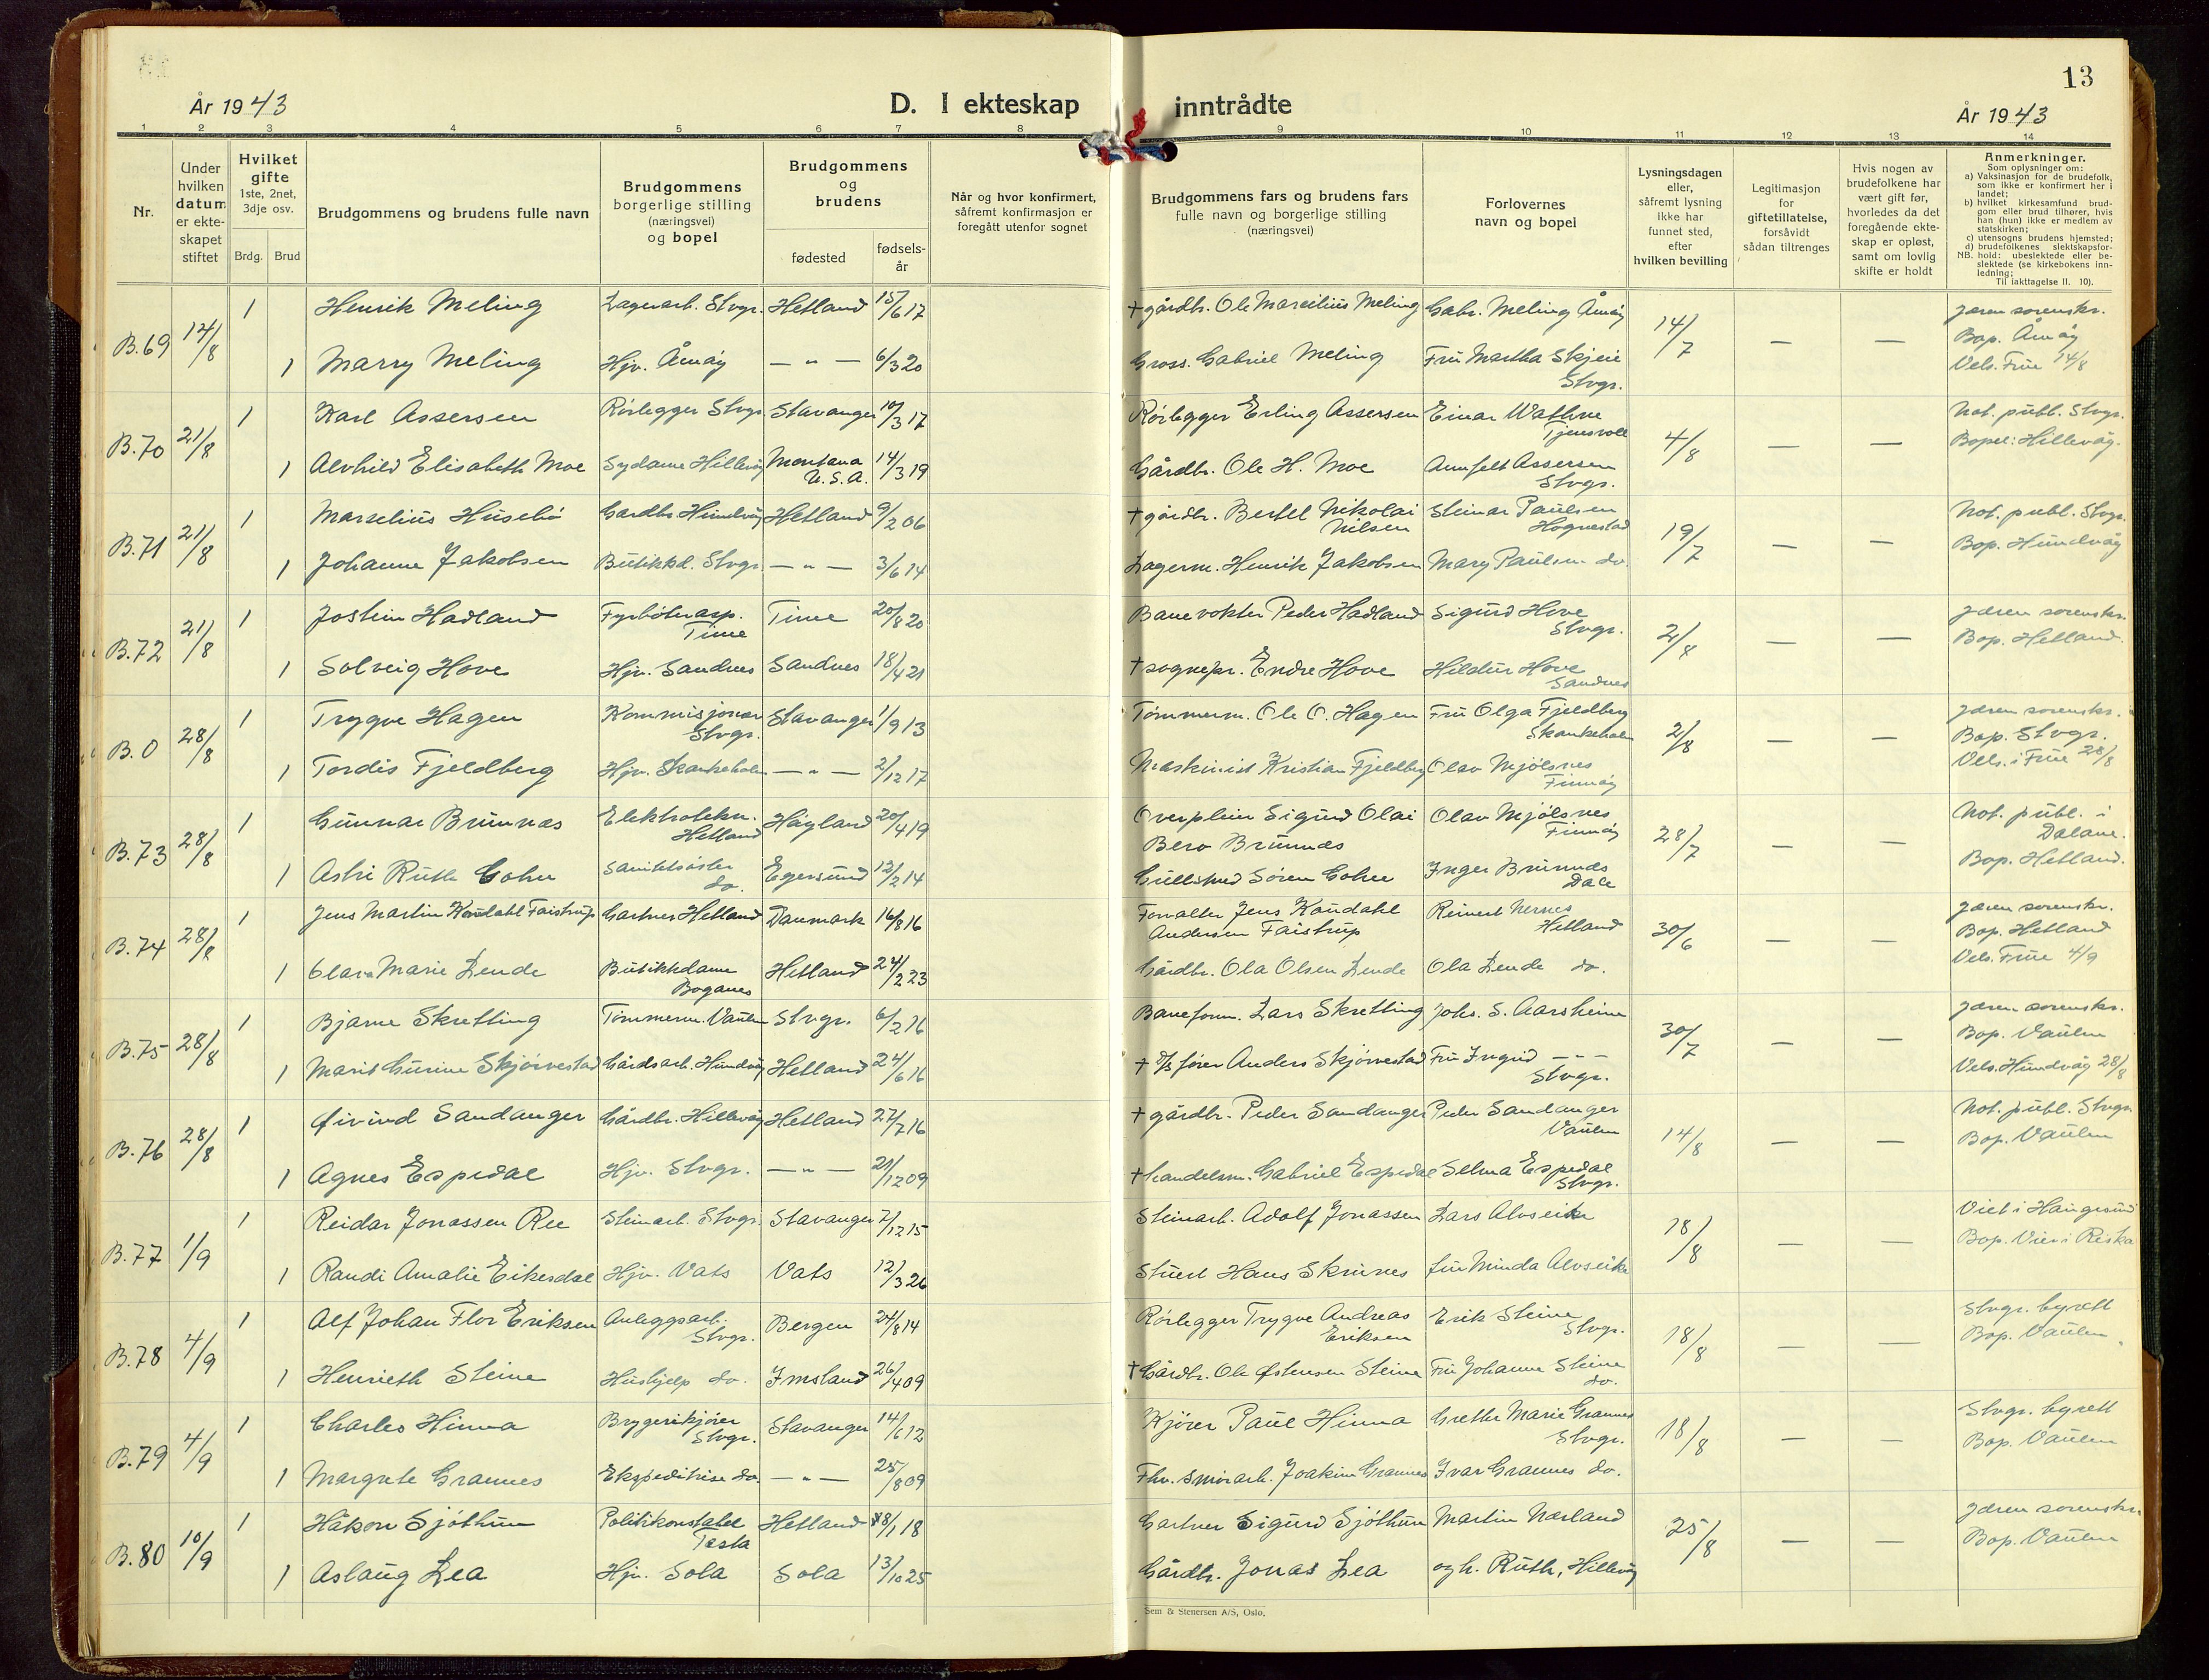 13
År 1943
D. I ekteskap inntrådte
År 1943
1 2 3 4 5 6 7 8 9 10 11 12 13 14
Nr.
Under hvilken datum er ekteskapet stiftet
Hvilket gifte 1ste, 2net, 3dje osv.
Brdg. Brud
Brudgommens og brudens fulle navn
Brudgommens borgerlige stilling (næringsvei) og bopel
Brudgommens og brudens
fødested
fødsels-år
Når og hvor konfirmert, såfremt konfirmasjon er foregått utenfor sognet
Brudgommens fars og brudens fars fulle navn og borgerlige stilling (næringsvei)
Forlovernes navn og bopel
Lysningsdagen eller, såfremt lysning ikke har funnet sted, efter hvilken bevilling
Legitimasjon for giftetillatelse, forsåvidt sådan tiltrenges
Hvis nogen av brudefolkene har vært gift før, hvorledes da det foregående ekteskap er opløst, samt om lovlig skifte er holdt
Anmerkninger.
Som oplysninger om:
a) Vaksinasjon for de brudefolk, som ikke er konfirmert her i landet;
b) hvilket kirkesamfund brudgom eller brud tilhører, hvis han (hun) ikke er medlem av statskirken;
c) utensogns brudens hjemsted;
d) brudefolkenes slektskapsforhold: ubeslektede eller beslektede (se kirkebokens innledning;
NB.
Til iakttagelse II. 10).
B.69 14/8 1 Henrik Meling Lagerarb. Stvgr. Hetland 15/6 17 † gårdbr. Ole Marcilius Meling Gabr. Meling Åmøy 14/7 — — Jæren sorenskr.
Bop. Åmøy
1 Marry Meling Hjv. Åmøy — " — 6/3 20 Gross. Gabriel Meling Fru Martha Skjeie Stvgr. Vels. Frue 14/8
B.70 21/8 1 Karl Assersen Rørlegger Stvgr. Stavanger 10/3 17 Rørlegger Erling Assersen Einar Wathne Tjensvoll 4/8 — — Not. publ. Stvgr.
Bopel: Hillevåg.
1 Alvhild Elisabeth Moe Sydame Hillevåg Montana U.S.A. 14/3 19 Gårdbr. Ole H. Moe Assersen Stvgr.
B.71 21/8 1 Marselius Husebø Gardbr. Hundvåg Hetland 9/2 06 † gårdbr. Bertel Nikolai Nilsen Steinar Paulsen Hognestad 19/7 — — Not. publ. Stvgr.
Bop. Hundvåg
1 Johanne Jakobsen Butikkd. Stvgr. — " — 3/6 14 Lagerm. Henrik Jakobsen Mary Paulsen do.
B.72 21/8 1 Jostein Hadland Fyrbøterasp. Time Time 20/8 20 Banevokter Peder Hadland Sigurd Hove Stvgr. 2/8 — — Jæren sorenskr.
Bop. Hetland.
1 Solveig Hove Hjv. Sandnes Sandnes 18/4 21 † sognepr. Endre Hove Hildur Hove Sandnes
B.0 28/8 1 Trygve Hagen Kommisjonær Stvgr. Stavanger 1/9 13 Tømmerm. Ole O. Hagen Fru Olga Fjeldberg Skankeholm 2/8 — — Jæren sorenskr.
Bop. Stvgr.
1 Tordis Fjeldberg Hjv. Skankeholm — " — 2/12 17 Maskinist Kristian Fjeldberg Olav Mjølsnes Finnøy Vels. i Frue 28/8
B.73 28/8 1 Gunnar Brunnæs Elektrotekn. Hetland Høyland 20/4 19 Overplein Sigurd Olai Bero Brunnæs Olav Mjølsnes Finnøy 28/7 — — Not. publ. i Dalane.
Bop. Hetland.
1 Astri Ruth Gohn do. Egersund 12/2 14 Gullsmed Søren Gohn Inger Brunnæs Dale
B.74 28/8 1 Jens Martin Kaudahl Faistrup Gartner Hetland Danmark 16/8 16 Forvalter Jens Kaudahl Andersen Faistrup Reinert Nernes Hetland 30/6 — — Jæren sorenskr.
Bop. Hetland
1 Clara Marie Lende Butikkdame Boganes Hetland 24/2 23 Gårdbr. Ola Olsen Lende Ola Lende do. Vels. Frue 4/9
B.75 28/8 1 Bjarne Skretting Tømmerm. Vaulen Stvgr. 6/2 16 Baneform. Lars Skretting Johs. S. Aarsheim 30/7 — — Jæren sorenskr.
Bop. Vaulen
1 Marit Gurine Skjørvestad Gårdsarb. Hundvåg Hetland 24/6 16 † D/S fører Anders Skjørvestad Fru Ingrid — " — Stvgr. Vels. Hundvåg 28/8
B.76 28/8 1 Øivind Sandanger Gårdbr. Hillevåg Hetland 27/7 16 † gårdbr. Peder Sandanger Peder Sandanger Vaulen 14/8 — — Not. publ. Stvgr.
Bop. Vaulen
1 Agnes Espedal Hjv. Stvgr. — " — 21/12 09 † handelsm. Gabriel Espedal Selma Espedal Stvgr.
B.77 1/9 1 Reidar Jonassen Ree Steinarb. Stvgr. Stavanger 7/12 15 Steinarb. Adolf Jonassen Lars Alvseike 18/8 — — Viet i Haugesund
Bop. Vier i Riska
1 Randi Amalie Eikesdal Hjv. Vats Vats 12/3 26 Stuert Hans Skrunes fru Minda Alvseike
B.78 4/9 1 Alf Johan Flor Eriksen Anleggsarb. Stvgr. Bergen 24/8 14 Rørlegger Trygve Andreas Eriksen Erik Steine Stvgr. 18/8 — — Stvgr. byrett
Bop. Vaulen
1 Henrieth Steine Hushjelp do. Imsland 26/4 09 † Gårdbr. Ole Østensen Steine Fru Johanne Steine do.
B.79 4/9 1 Charles Hinna Bryggerikjører Stvgr. Stavanger 14/6 12 Kjører Paul Hinna Grethe Marie Grannes Stvgr. 18/8 — — Stvgr. byrett
Bop. Vaulen
1 Margrete Grannes Ekspeditrise do. — " — 25/8 09 Fhv. smørarb. Joakim Grannes Ivar Grannes do.
B.80 10/9 1 Håkon Sjøthun Politikonstabel Tasta Hetland 18/1 18 Gartner Sigurd Sjøthun Martin Nærland 25/8 — — Jæren sorenskr.
Bop. Vaulen
1 Aslaug Lea Hjv. Sola Sola 13/10 25 Gårdbr. Jonas Lea og h. Ruth, Hillevåg
Sem & Stenersen A/S, Oslo.